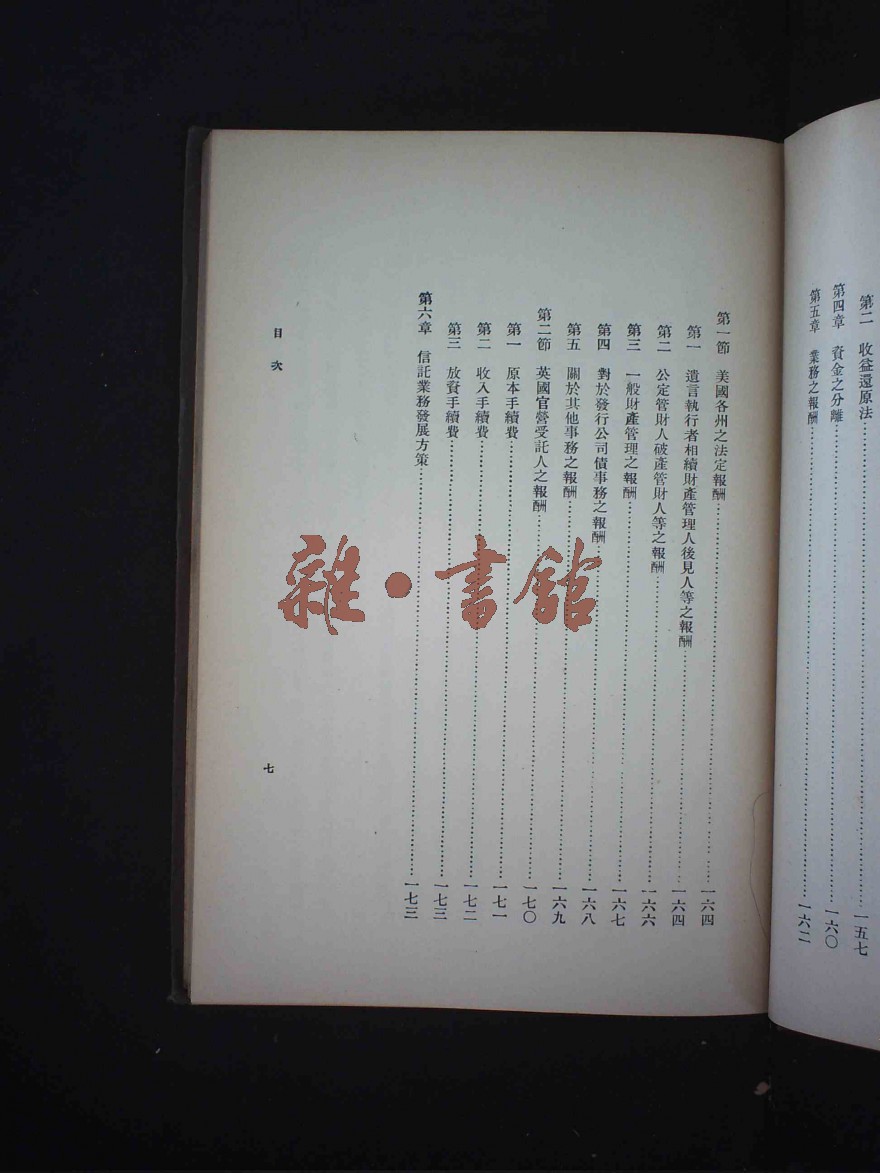 第二　收益還原法……一五七
第四章　資金之分離……一六〇
第五章　業務之報酬……一六二
第一節　美國各州之法定報酬……一六四
第一　遺言執行者相續財產管理人後見人等之報酬……一六四
第二　公定管財人破產管財人等之報酬……一六六
第三　一般財產管理之報酬……一六七
第四　對於發行公司債事務之報酬……一六八
第五　關於其他事務之報酬……一六九
第二節　英國官營受託人之報酬……一七〇
第一　原本手續費……一七一
第二　收入手續費……一七二
第三　放資手續費……一七三
第六章　信託業務發展方策……一七三
目次
七
雜·書館